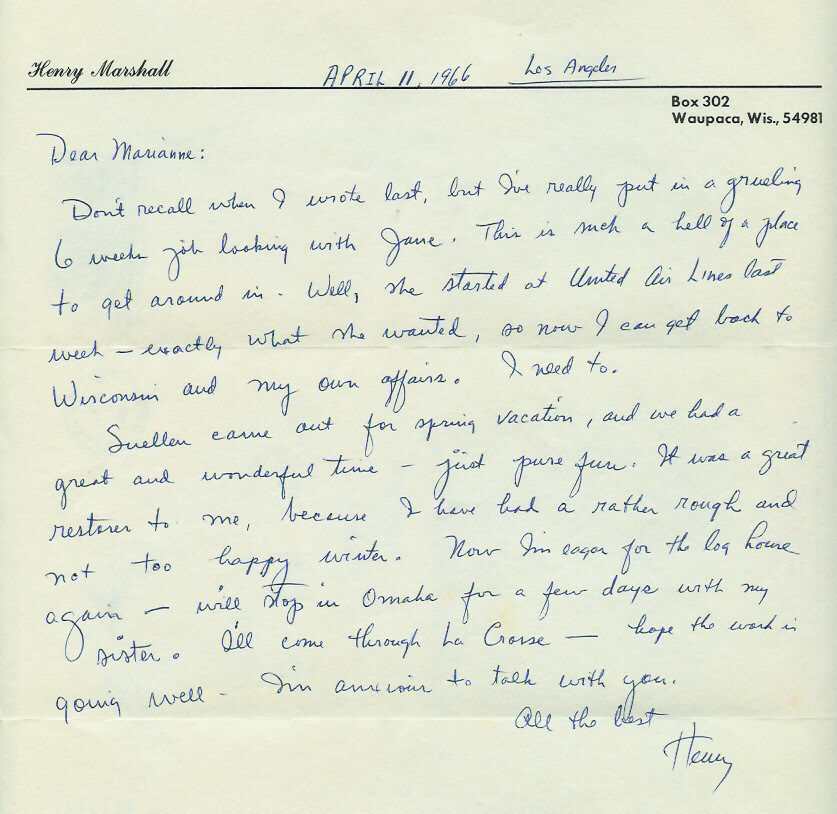 Henry Marshall
APRIL 11, 1966 Los Angeles
Box 302
Waupaca, Wis., 54981
Dear Marianne:
Don't recall when I wrote last, but I've really put in a grueling
6 weeks job looking with Jane. This is such a hell of a place
to get around in. Well, she started at United Air Lines last
week — exactly what she wanted, so now I can get back to
Wisconsin and my own affairs. I need to.
Suellen came out for spring vacation, and we had a
great and wonderful time — just pure fun. It was a great
restorer to me, because I have had a rather rough and
not too happy winter. Now I'm eager for the log house
again — will stop in Omaha for a few days with my
sister. I'll come through La Crosse — hope the work is
going well — I'm anxious to talk with you.
All the best
Henry